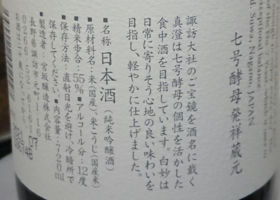 七号酵母発祥蔵元
諏訪大社のご宝鏡を酒名に戴く
真澄は七号酵母の個性を活かした
食中酒を目指しています。白妙は
日常に寄りそう心地の良い味わいを
目指し、軽やかに仕上げました。
■名称 日本酒(純米吟醸酒)
■原材料名:米(国産)・米こうじ(国産米)
■精米歩合:55%■アルコール分:12度
■保存方法:直射日光を避け、冷暗所で
保存してください。■内容量:720ml
長野県諏訪市元町1-16